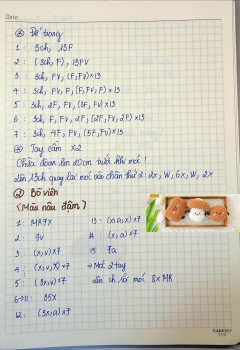 Date:
Đế trong
1: 3ch, 13F
2: (3ch, F), 13FV
3: 3ch, FV, (F, FV) x 13
4: 3ch, FV, F, (F, FV, F) x 13
5: 3ch, 2F, FV, (3F, FV) x 13
6: 3ch, F, FV, 2F, (2F, FV, 2F) x 13
7: 3ch, 4F, FV, (5F, FV) x 13
Tay cầm x2
Chừa đoạn len 20cm trước khi móc!
Lên 13ch quay lại móc vào chân thứ 2: 2X, W, 6X, W, 2X
Bó viền
(Màu nâu đậm)
1: MR7X
2: 7V
3: (X, V) x 7
4: (X, V, X) x 7
5: (3X, V) x 7
6→11: 35X
12: (3X, A) x 7
13: (X, A, X) x 7
14: (X, A) x 7
15: 7A
→ Móc 2 tay
8X MR